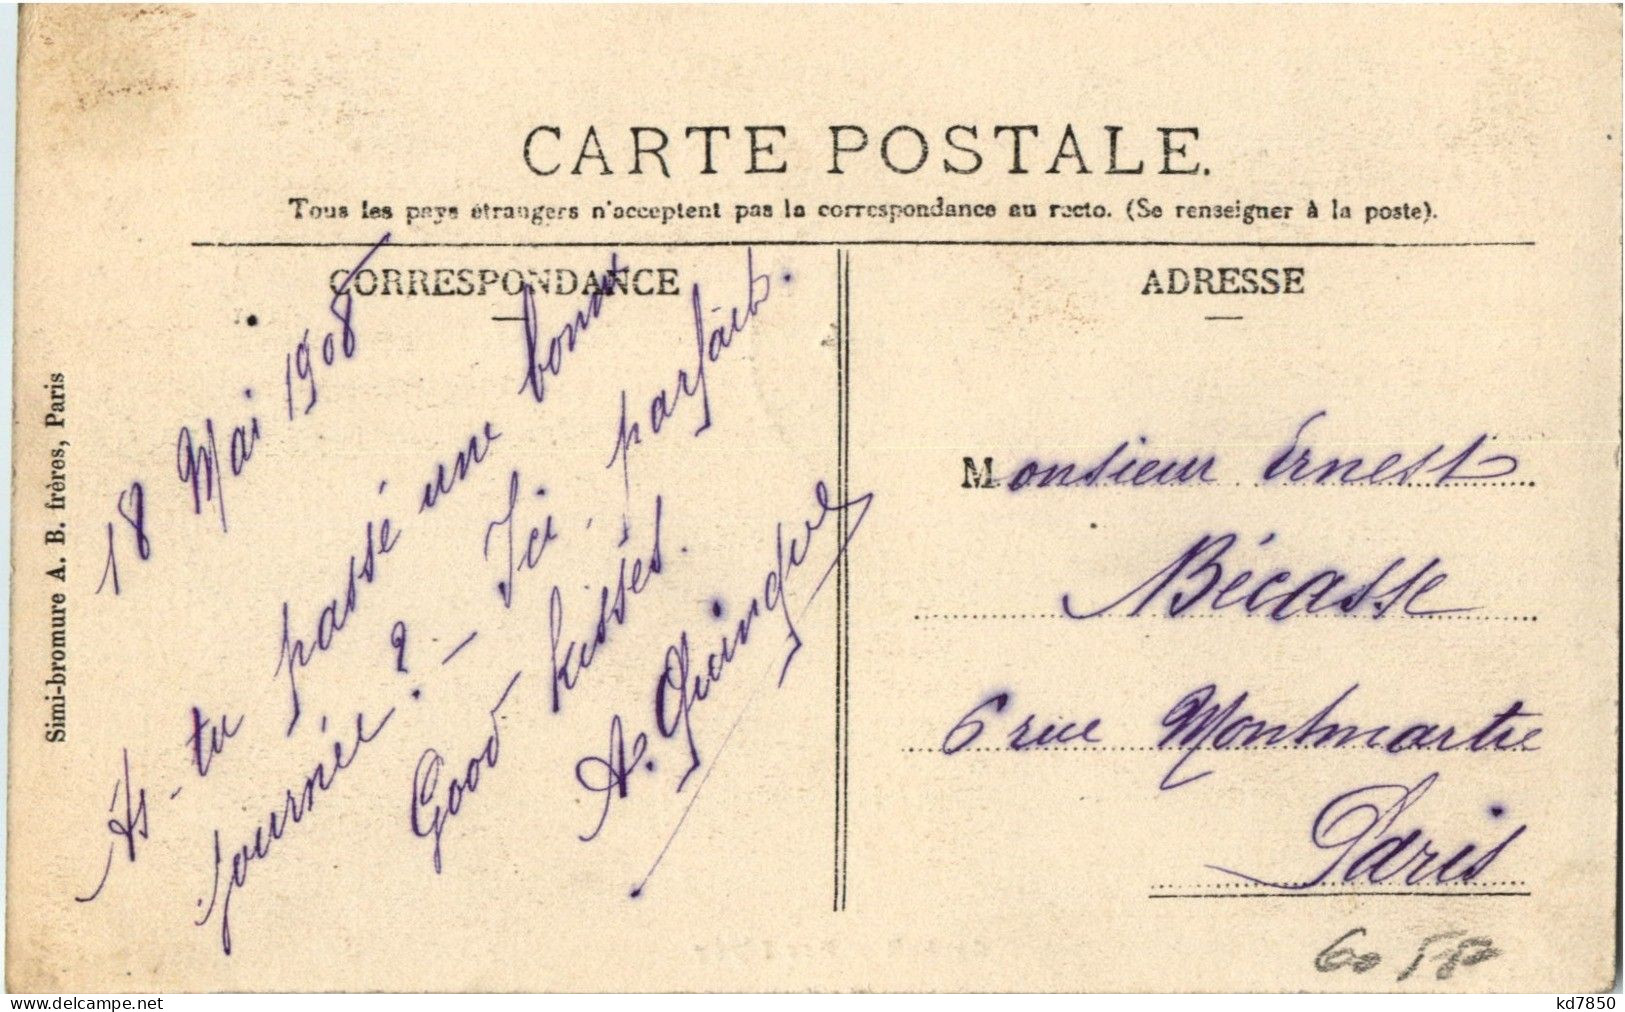 CARTE POSTALE.
Tous les pays étrangers n'acceptent pas la correspondance au recto. (Se renseigner à la poste).
CORRESPONDANCE
18 Mai 1908
As-tu passé une bonne
journée? - Ici parfait.
Good kisses.
A.
ADRESSE
Monsieur Ernest
Bécasse
6 rue Montmartre
Paris
Simi-bromure A. B. frères, Paris
60
delcampe.net
kd7850